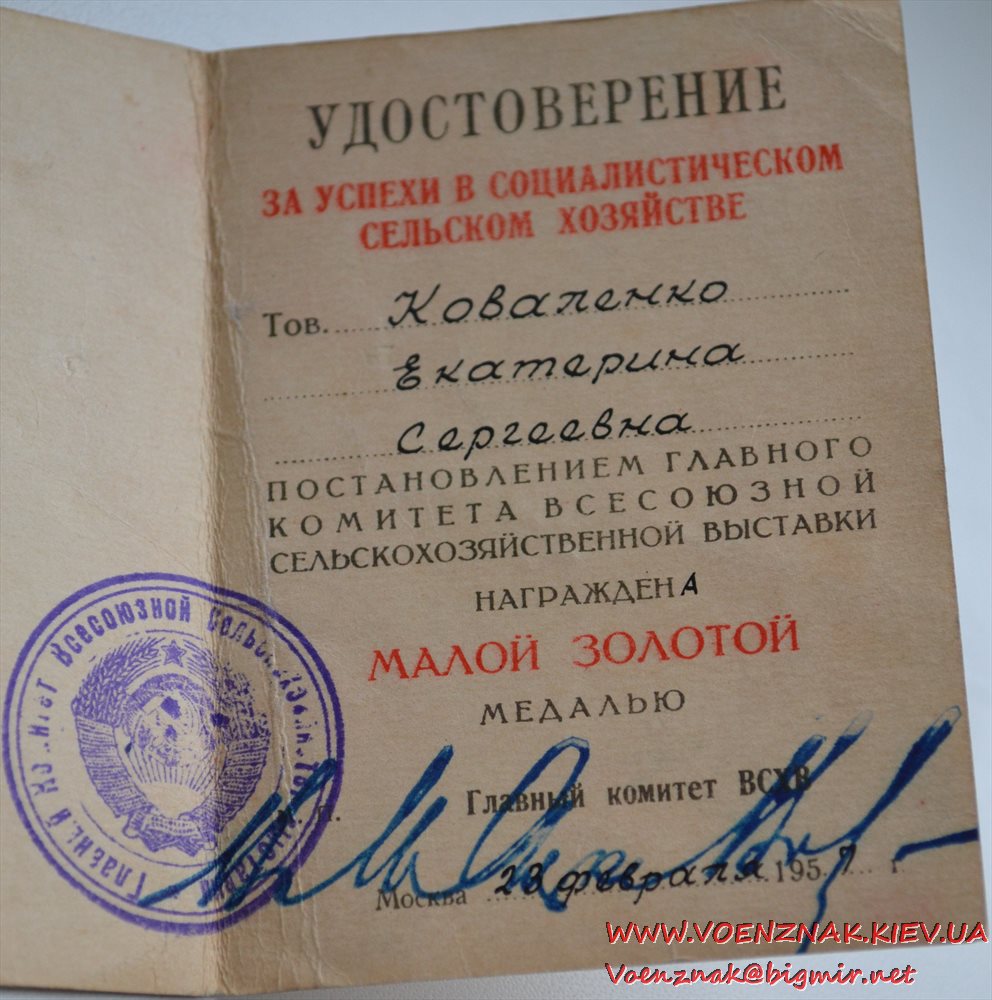 УДОСТОВЕРЕНИЕ
ЗА УСПЕХИ В СОЦИАЛИСТИЧЕСКОМ
СЕЛЬСКОМ ХОЗЯЙСТВЕ
Тов. Коваленко
Екатерина
Сергеевна
ПОСТАНОВЛЕНИЕМ ГЛАВНОГО
КОМИТЕТА ВСЕСОЮЗНОЙ
СЕЛЬСКОХОЗЯЙСТВЕННОЙ ВЫСТАВКИ
НАГРАЖДЕНА
МАЛОЙ ЗОЛОТОЙ
МЕДАЛЬЮ
Главный комитет ВСХВ
П.
Москва 23 февраля 1957 г.
Главный Комитет Всесоюзной сельскохозяйственной
WWW.VOENZNAK.KIEV.UA
Voenznak@bigmir.net